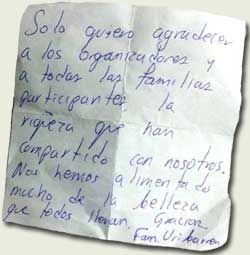 Solo quiero agradecer
a los organizadores y
a todas las familias
participantes la
riqueza que han
compartido con nosotros.
Nos hemos alimentado
mucho de la belleza
que todos llevan. Gracias
Fam. Uribarren